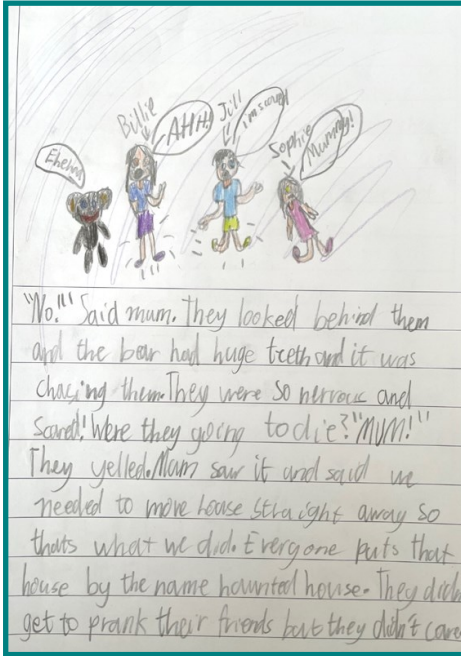 Billie
AHH!
Jill
I'm scared
Sophie
Mummy!
"No!" Said mum. They looked behind them
and the bear had huge teeth and it was
chasing them. They were so nervous and
scared! Were they going to die? "MUM!"
They yelled. Mum saw it and said we
needed to move house straight away so
thats what we did. Everyone puts that
house by the name haunted house. They didn
get to prank their friends but they didn't care